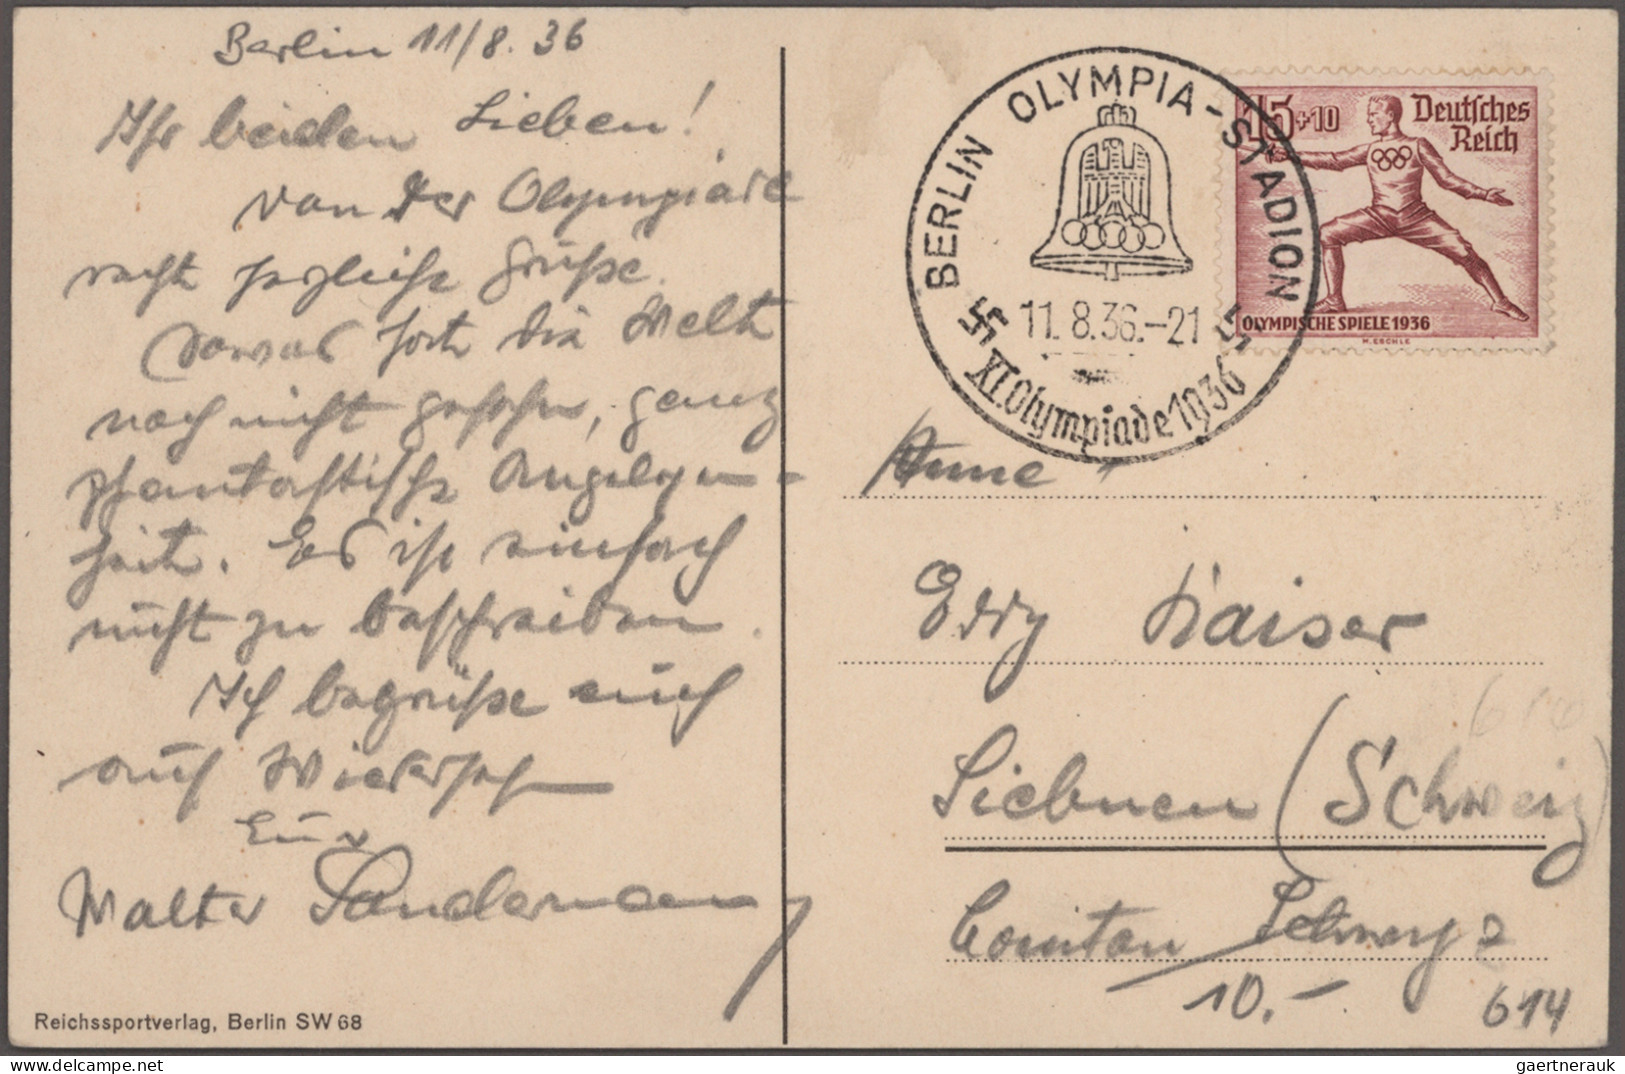 Berlin 11/8. 36
Ihr beiden Lieben!
Von der Olympiade
recht herzliche Grüße.
Sowas hat die Welt
noch nicht gesehen, ganz
phantastische Angelegen-
heit. Es ist einfach
nicht zu beschreiben.
Ich begrüße euch
auf Wiedersehn
Euer
Walter
Reichssportverlag, Berlin SW 68
BERLIN OLYMPIA-STADION
11. 8. 36.-21
XI. Olympiade 1936
15+10
Deutsches
Reich
OLYMPISCHE SPIELE 1936
M. ESCHLE
Anne
Edy Kaiser
Siebnen (Schweiz)
Schwyz
10.-
614
gaertnerauk